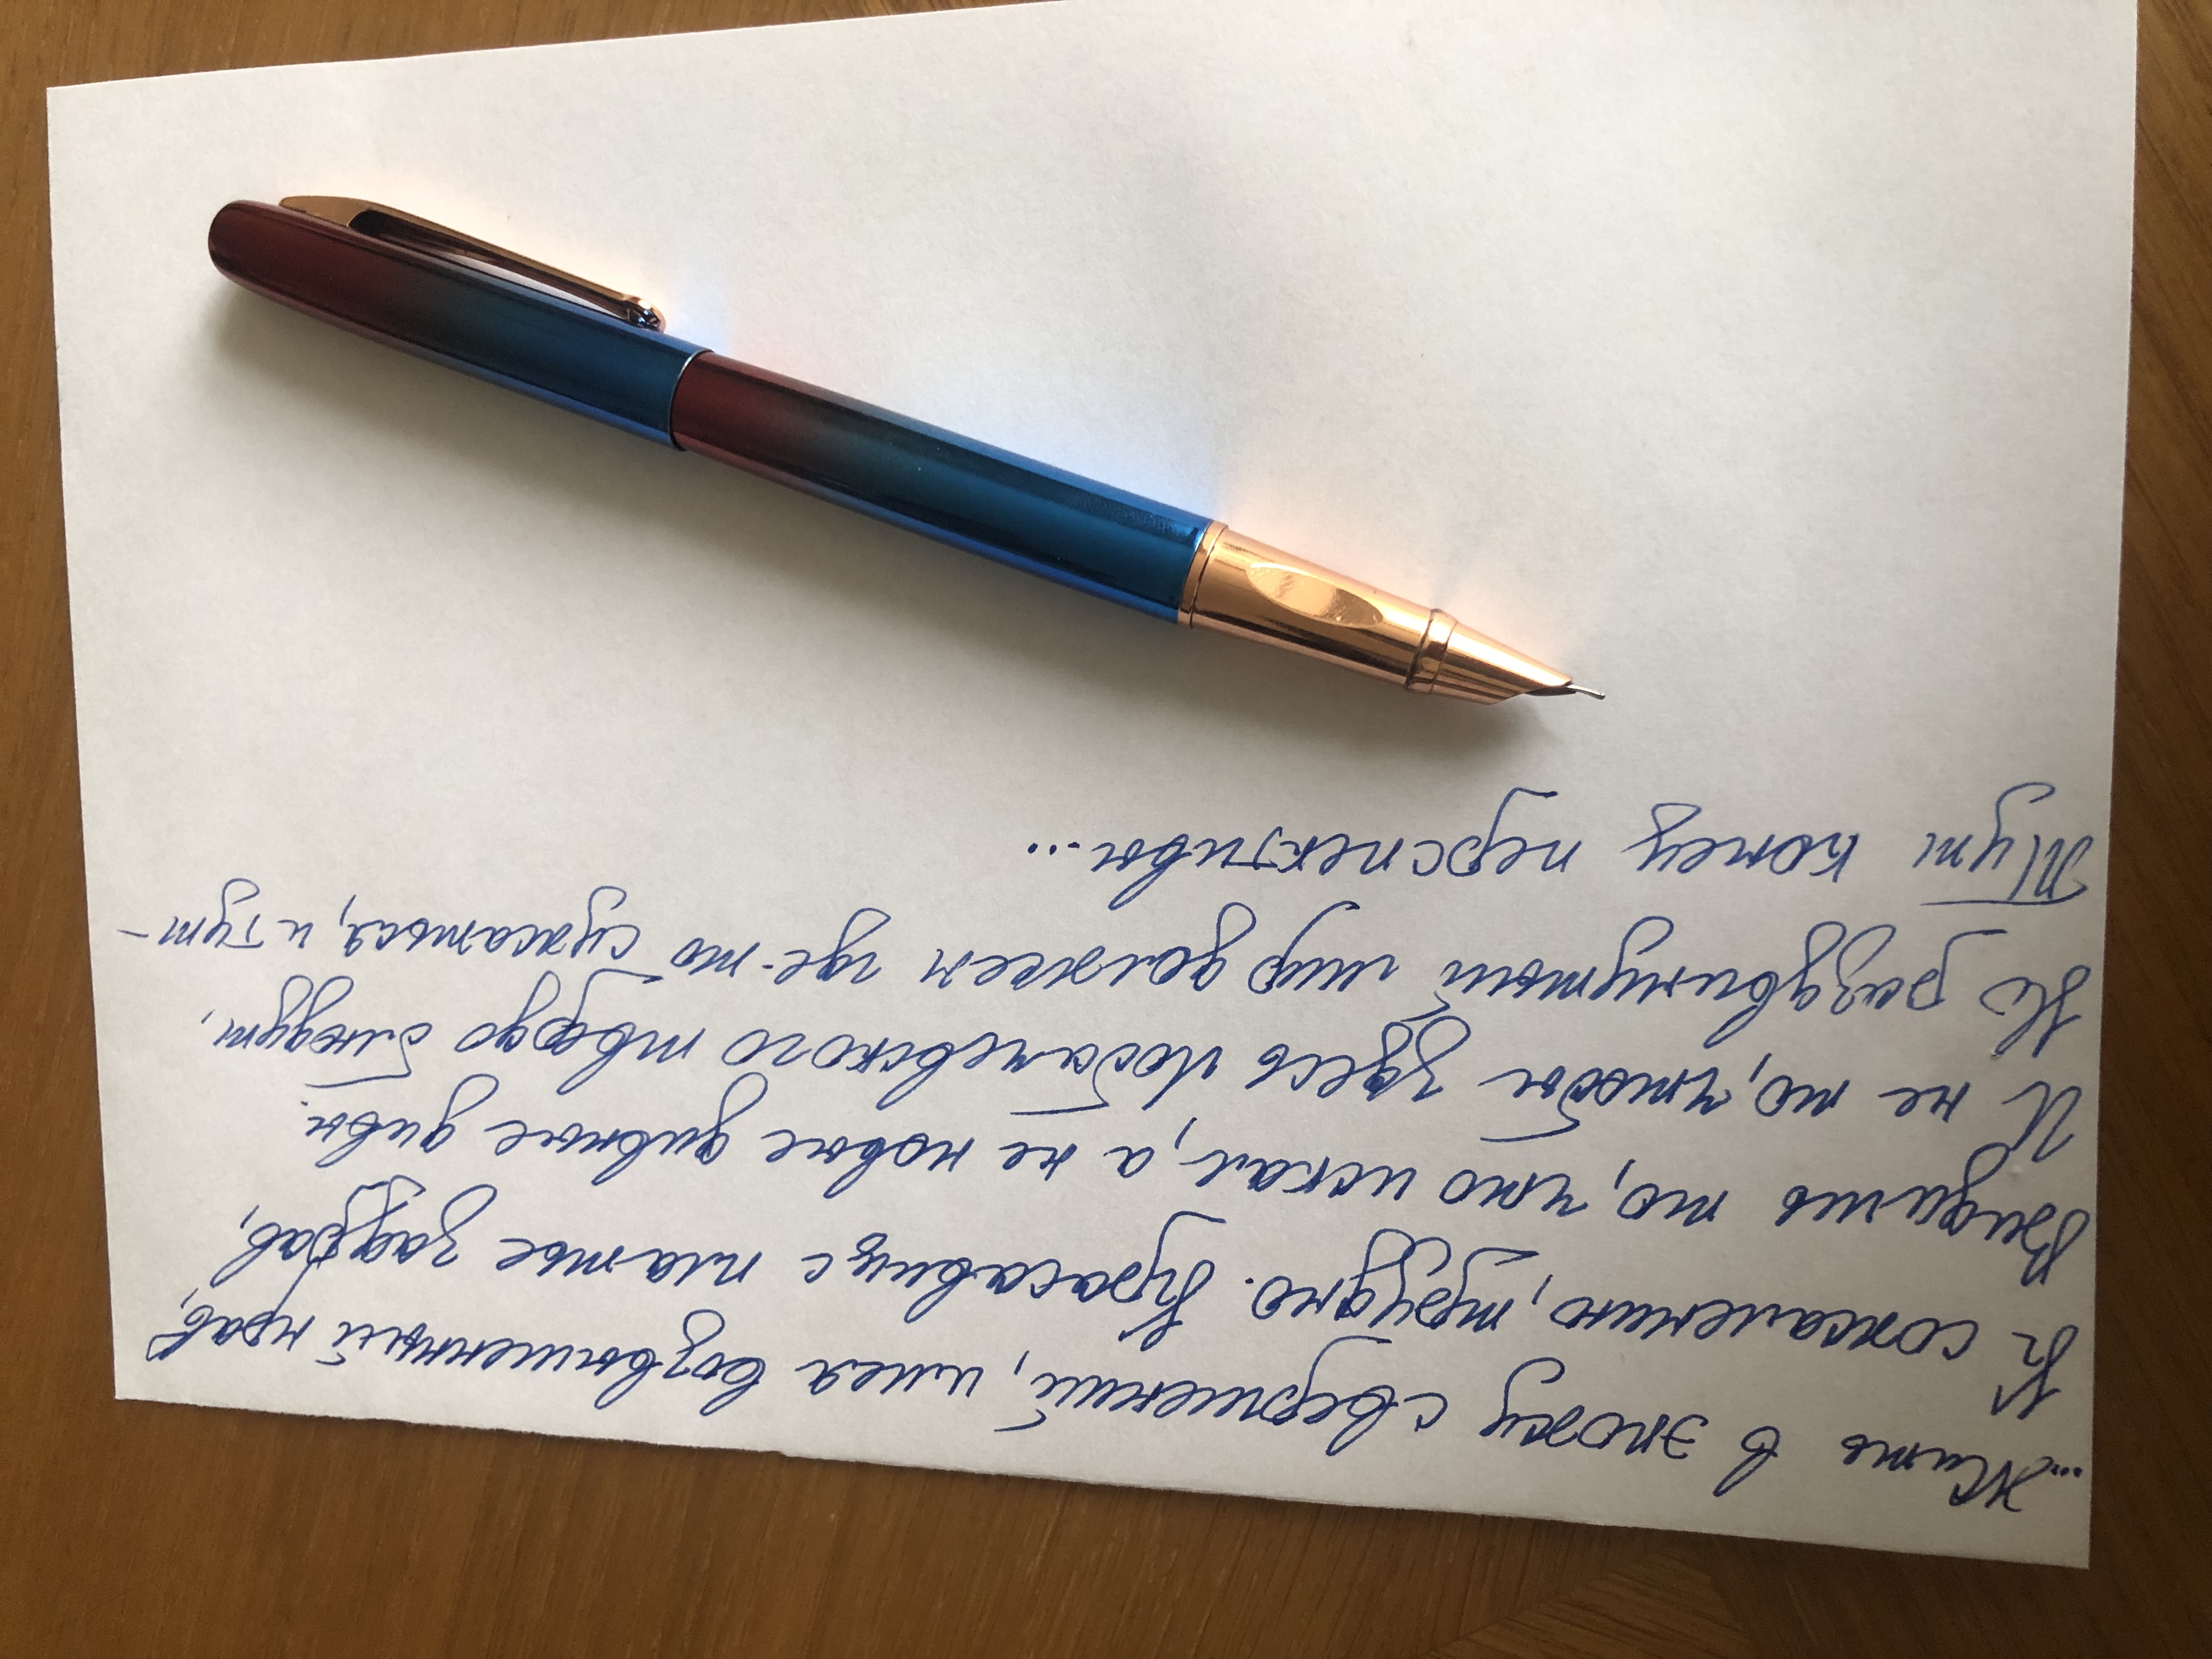 ...Жить в эпоху свершений, имея возвышенный нрав,
к сожалению, трудно. Красавице платье задрав,
видишь то, что искал, а не новые дивные дивы.
И не то, чтобы здесь Лобачевского твердо блюдут,
Но раздвинутый мир должен где-то сужаться, и тут -
Тут конец перспективы...